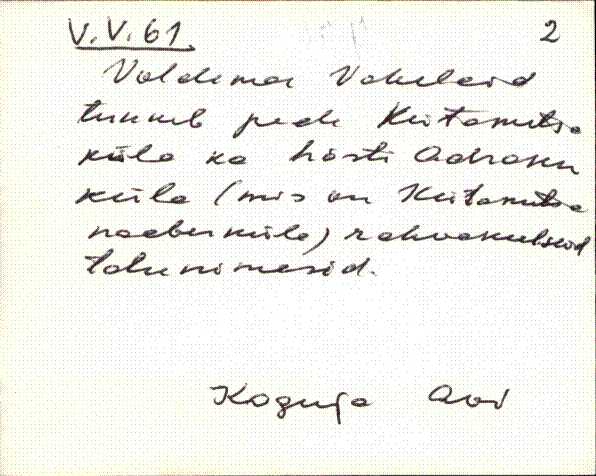 V.V.61. 2
Valdemar Vakeleid
tunneb peale Keitametsa
küla ka hästi Adraku
küla (mis on Keitametsa
naaberküla) rahvakulseid
talunimesid.
Koguja Avi